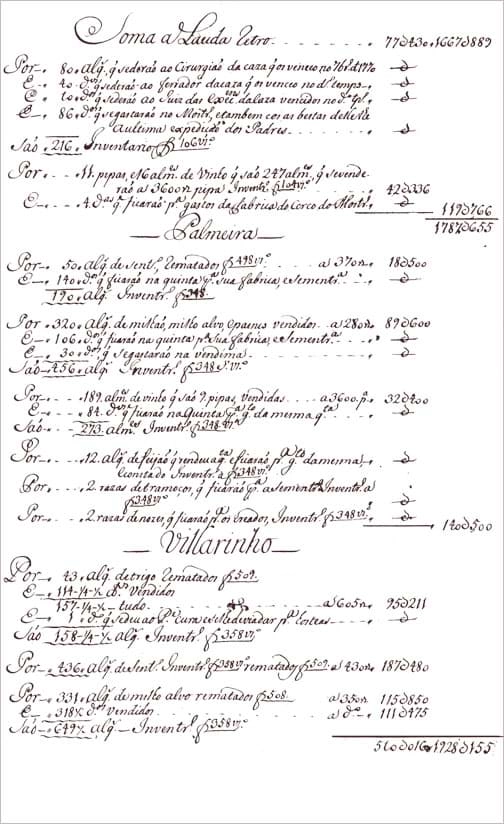 Soma a Lauda Retro - - - - - 77∂430. 1667∂889
Por - - 80. Alq.s q̃ sederaõ ao Cirurgiaõ da caza q̃ os venceo no 7br.o d 1770 - ∂
E - - 40. d.os q̃ sederaõ ao ferrador dacaza q̃ os venceo no d.o tempo - ∂
E - - 10. d.os q̃ sederaõ ao Juiz das - ∂
E - - 86. d.os q̃ segastaraõ no Mostr.o, etambem com as bestas
Aultima expediçaõ dos Padres - ∂
Saõ 216. Inventario f 106 v.o
Por - - 11. pipas, e 16 alm.s de Vinho q̃ saõ 247 alm.s, q̃ sevende
raõ a 3600 r. pipa Inventr.o f 104 v.o - 42∂336
E - - 4. d.as q̃ ficaraõ p.a gastos da fabrica do Cerco do Mostr.o - ∂ 119∂766
1787∂655
Palmeira
Por - - 50. Alq. de sent.o, Rematados f 498 v.o - a 370 r. 18∂500
E - - 140. d.os q̃ ficaraõ na quinta p.a sua fabrica, e Sement.ra - ∂
190. Alq. Inventr.o f 348.
Por - - 320. Alq. de milhaõ, milho alvo, e painço vendidos a 280 r. 89∂600
E - - 106. d.os q̃ ficaraõ na quinta p.a sua fabrica, e Sementr.a - ∂
E - - 30. d.os q̃ segastaraõ na vendima - ∂
Saõ 456. alq. Inventr.o f 348 v.o
Por - - 189. alm.es de vinho q̃ saõ 9. pipas, vendidas - a 3600. p. 32∂400
E - - 84. d.os q̃ ficaraõ na Quinta p.a g.to da mesma q.ta - ∂
Saõ - - 273. alm.es Inventr.o f 348 v.o
Por - - 12. alq. de feijaõ q̃ rendeu a q.ta e ficaraõ p.a g.to da mesma,
Inventr.o a f 348 v.o - ∂
Por - - 2. razas de tramoços, q̃ ficaraõ p.a a sement.ra Inventr.o a
f 348 v.o - ∂
Por - - 2. razas de nozes, q̃ ficaraõ p.a os creados, Inventr.o f 348 v.o - ∂
140∂500
Villarinho
Por - - 43. Alq. de trigo Rematados f 509.
E - - 114-¼-½ d.os Vendidos
157-¼-½ tudo - - a 605 r. 95∂211
E - - 1. d.o q̃ sedeu ao P.e Cura p.a hosteas - ∂
Saõ 158-¼-½ alq. Inventr.o f 358 v.o
Por - - 436. Alq. de Sent.o Inventr.o f 358 v.o rematados f 509. a 430 r. 187∂480
Por - - 331. Alq. de milho alvo rematados f 508. a 350 r. 115∂850
E - - 318½ d.os vendidos - a d.o - 111∂475
Saõ - 649½ Alq. - Inventr.o f 358 v.o
510∂016. 1928∂155